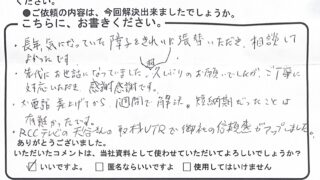 ださい。
●ご依頼の内容は、今回解決出来ましたでしょうか。
こちらに、お書きください。
・長年気になっていた障子をきれいに張替いただき、相談して
よかったです。
・先代にお世話になっていました。久しぶりのお願いでしたが、ご丁寧に
対応いただき、感謝感謝です。
・お電話差上げてから1週間で解決。短納期だったことは
有難かったです。
・RCCテレビの天谷さんの取材VTRで御社の信頼度がアップしました。
ありがとうございました。
いただいたコメントは、当社資料として使わせていただいてよろしいでしょうか?
いいですよ。 匿名ならいいですよ 使用してはいけません